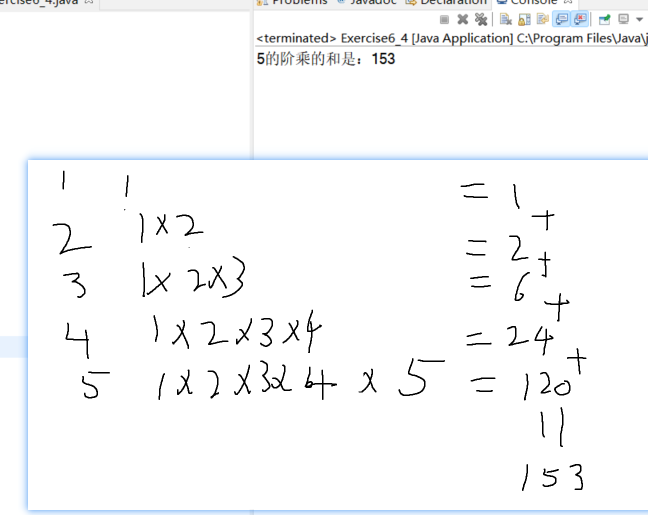 ercise6_4.java
Problems Javadoc Declaration Console
<terminated> Exercise6_4 [Java Application] C:\Program Files\Java\j
5的阶乘的和是：153
1 1 = 1 +
2 1×2 = 2 +
3 1×2×3 = 6 +
4 1×2×3×4 = 24 +
5 1×2×3×4×5 = 120
11
153